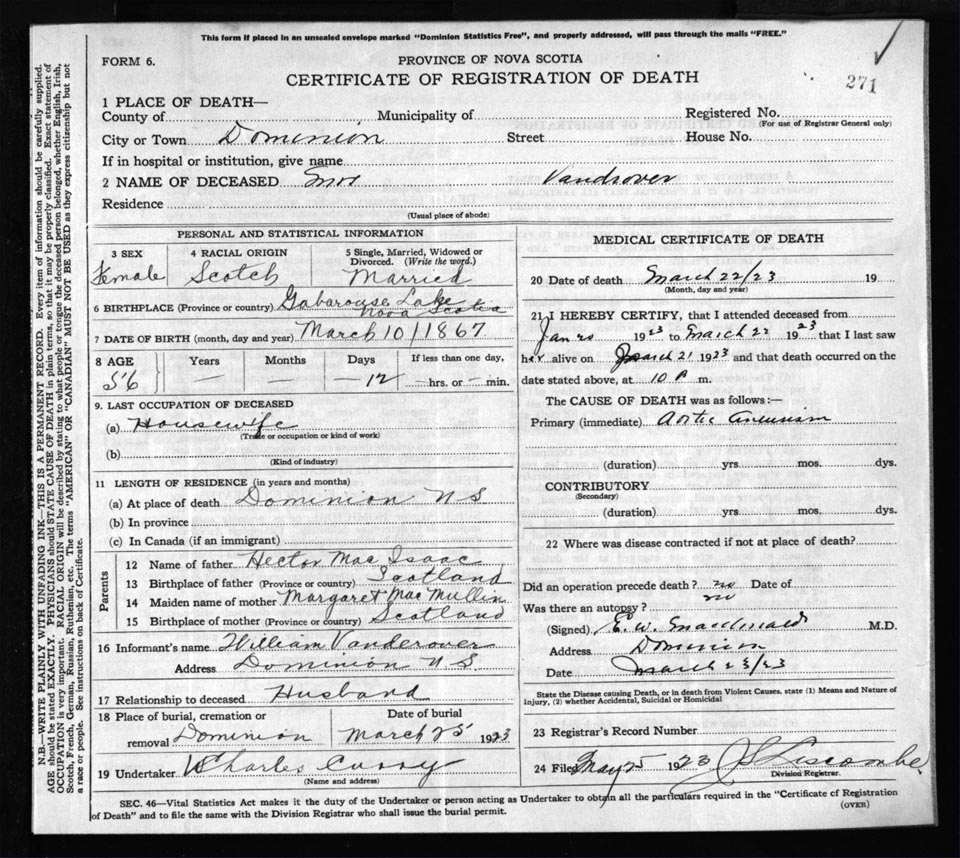 This form if placed in an unsealed envelope marked "Dominion Statistics Free", and properly addressed, will pass through the mails "FREE."
FORM 6.
PROVINCE OF NOVA SCOTIA
CERTIFICATE OF REGISTRATION OF DEATH
271
1 PLACE OF DEATH—
County of Municipality of Registered No.
(For use of Registrar General only)
City or Town Dominion Street House No.
If in hospital or institution, give name
2 NAME OF DECEASED Vandrover
Residence
(Usual place of abode)
PERSONAL AND STATISTICAL INFORMATION
3 SEX 4 RACIAL ORIGIN 5 Single, Married, Widowed or Divorced. (Write the word.)
Female Scotch Married
6 BIRTHPLACE (Province or country) Gabarouse Lake
Nova Scotia
7 DATE OF BIRTH (month, day and year) March 10/1867
8 AGE Years Months Days If less than one day,
56 — — — 12 — hrs. or — min.
9. LAST OCCUPATION OF DECEASED
(a) Housewife
(Trade or occupation or kind of work)
(b)
(Kind of industry)
11 LENGTH OF RESIDENCE (in years and months)
(a) At place of death Dominion N S
(b) In province
(c) In Canada (if an immigrant)
Parents
12 Name of father Hector Mac Isaac
13 Birthplace of father (Province or country) Scotland
14 Maiden name of mother Margaret Mac Mullin
15 Birthplace of mother (Province or country) Scotland
16 Informant's name William Vanderover
Address Dominion N S.
17 Relationship to deceased Husband
18 Place of burial, cremation or removal Dominion
Date of burial
March 25 1923
19 Undertaker Charles Curry
(Name and address)
MEDICAL CERTIFICATE OF DEATH
20 Date of death March 22/23 19
(Month, day and year)
21 I HEREBY CERTIFY, that I attended deceased from
1923 to March 22 1923 that I last saw
her alive on March 21 1923 and that death occurred on the
date stated above, at 10 P m.
The CAUSE OF DEATH was as follows:—
Primary (immediate) Aortic Aneurism
(duration) yrs. mos. dys.
CONTRIBUTORY
(Secondary)
(duration) yrs. mos. dys.
22 Where was disease contracted if not at place of death?
Did an operation precede death? no Date of
Was there an autopsy? no
(Signed) E. W. Macdonald M.D.
Address Dominion
Date March 23/23
State the Disease causing Death, or in death from Violent Causes, state (1) Means and Nature of
Injury, (2) whether Accidental, Suicidal or Homicidal
23 Registrar's Record Number
24 Filed May 25 1923 Liscombe
Division Registrar.
SEC. 46—Vital Statistics Act makes it the duty of the Undertaker or person acting as Undertaker to obtain all the particulars required in the "Certificate of Registration
of Death" and to file the same with the Division Registrar who shall issue the burial permit.
(OVER)
N.B.—WRITE PLAINLY WITH UNFADING INK—THIS IS A PERMANENT RECORD. Every item of information should be carefully supplied.
AGE should be stated EXACTLY. PHYSICIANS should STATE CAUSE OF DEATH in plain terms, so that it may be properly classified. Exact statement of
OCCUPATION is very important. RACIAL ORIGIN will be described by stating to what people or tongue the deceased person belonged, whether English, Irish,
Scotch, French, German, Russian, Ruthenian, etc. The terms "AMERICAN" OR "CANADIAN" MUST NOT BE USED as they express citizenship but not
a race or people. See instructions on back of Certificate.